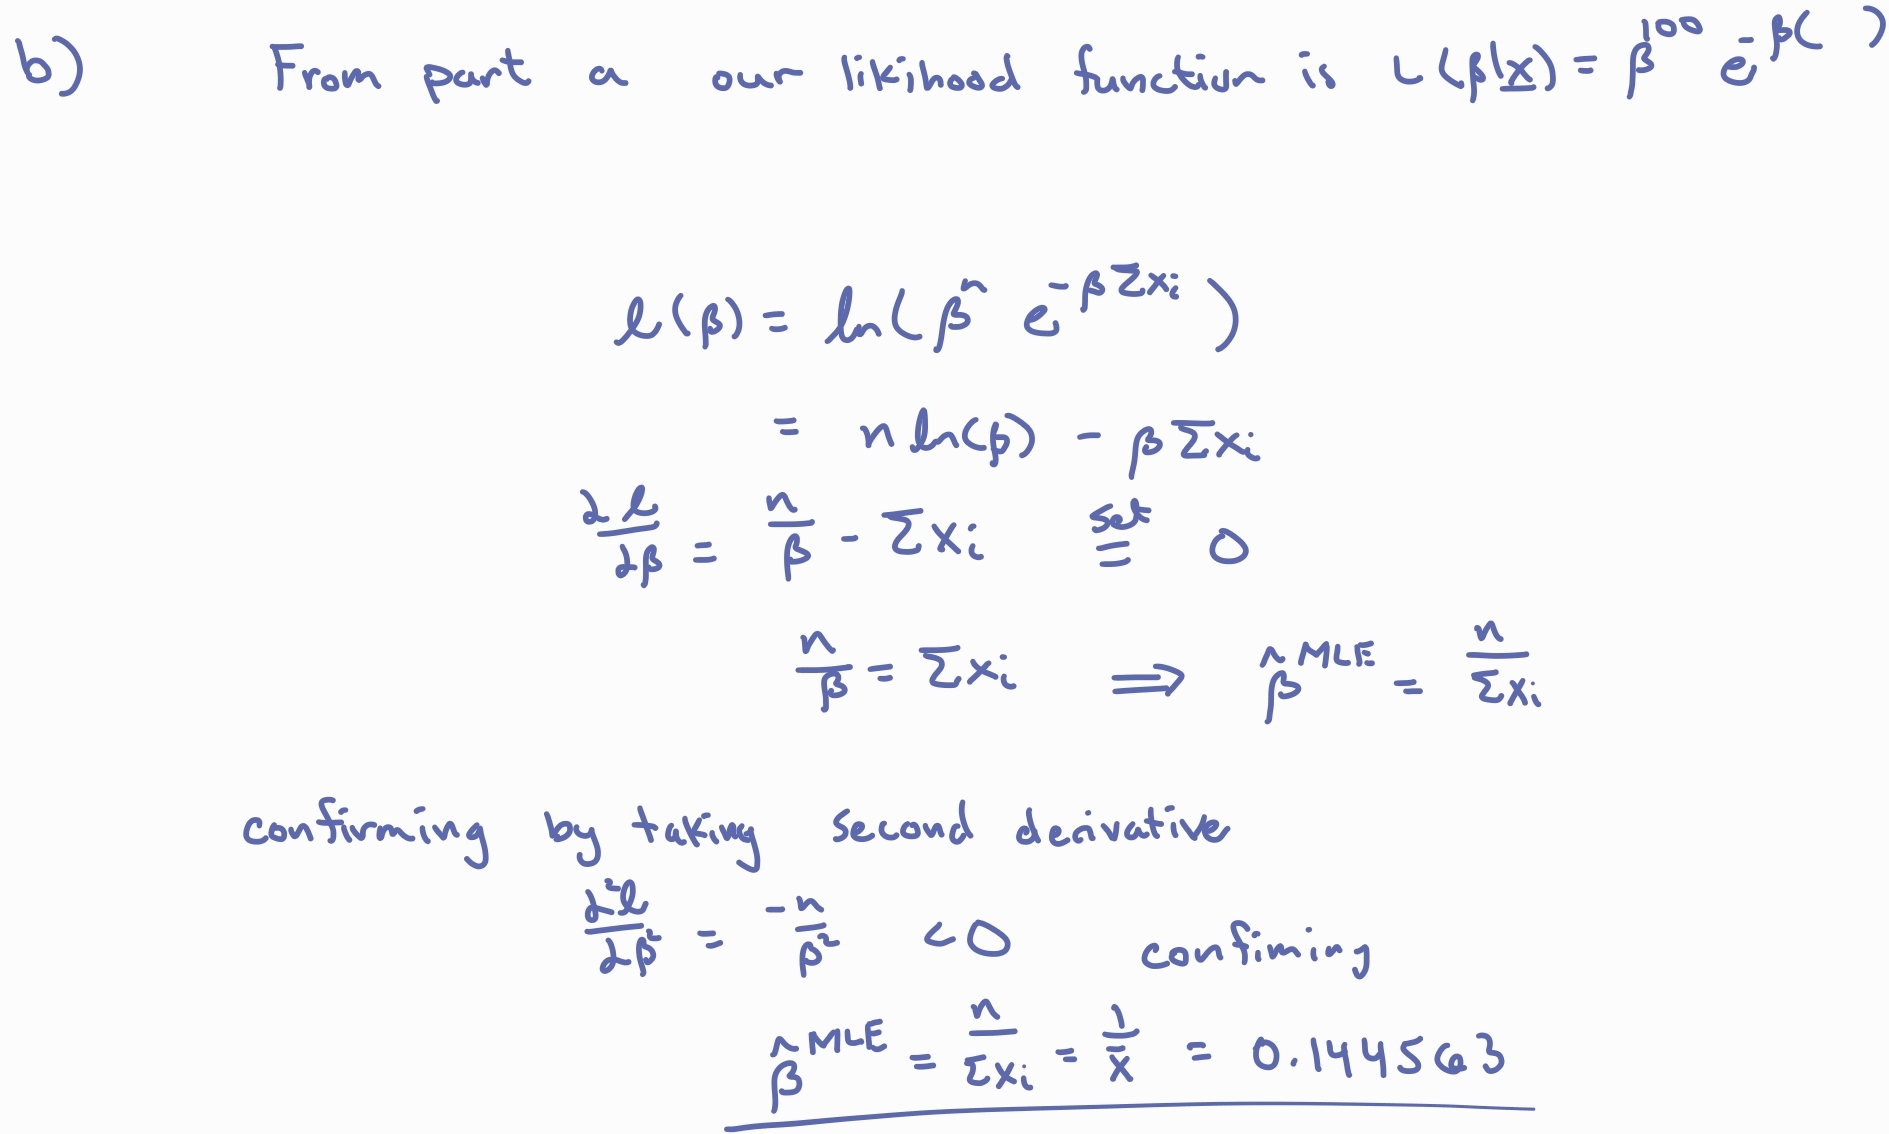 b) From part a our likihood function is L(β|x) = β^100 e^-β( )
l(β) = ln(β^n e^-βΣxi)
= n ln(β) - βΣxi
∂l/∂β = n/β - Σxi set= 0
n/β = Σxi ⟹ β̂^MLE = n/Σxi
confirming by taking second derivative
∂²l/∂β² = -n/β² <0 confiming
β̂^MLE = n/Σxi = 1/x̄ = 0.1445663